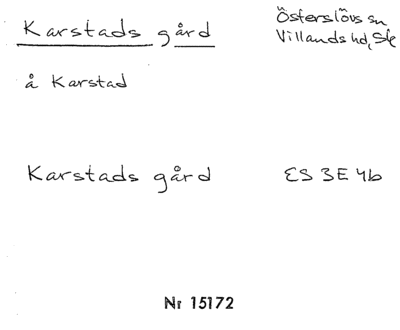 Karstads gård
Österslövs sn
Villands hd, Sk
å Karstad
Karstads gård
ES 3E 4b
Nr 15172